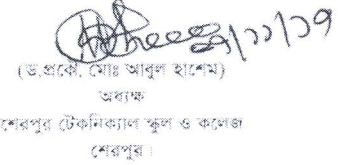 ০৭/১১/১৭
(ড.প্রকৌ. মোঃ আবুল হাশেম)
অধ্যক্ষ
শেরপুর টেকনিক্যাল স্কুল ও কলেজ
শেরপুর।